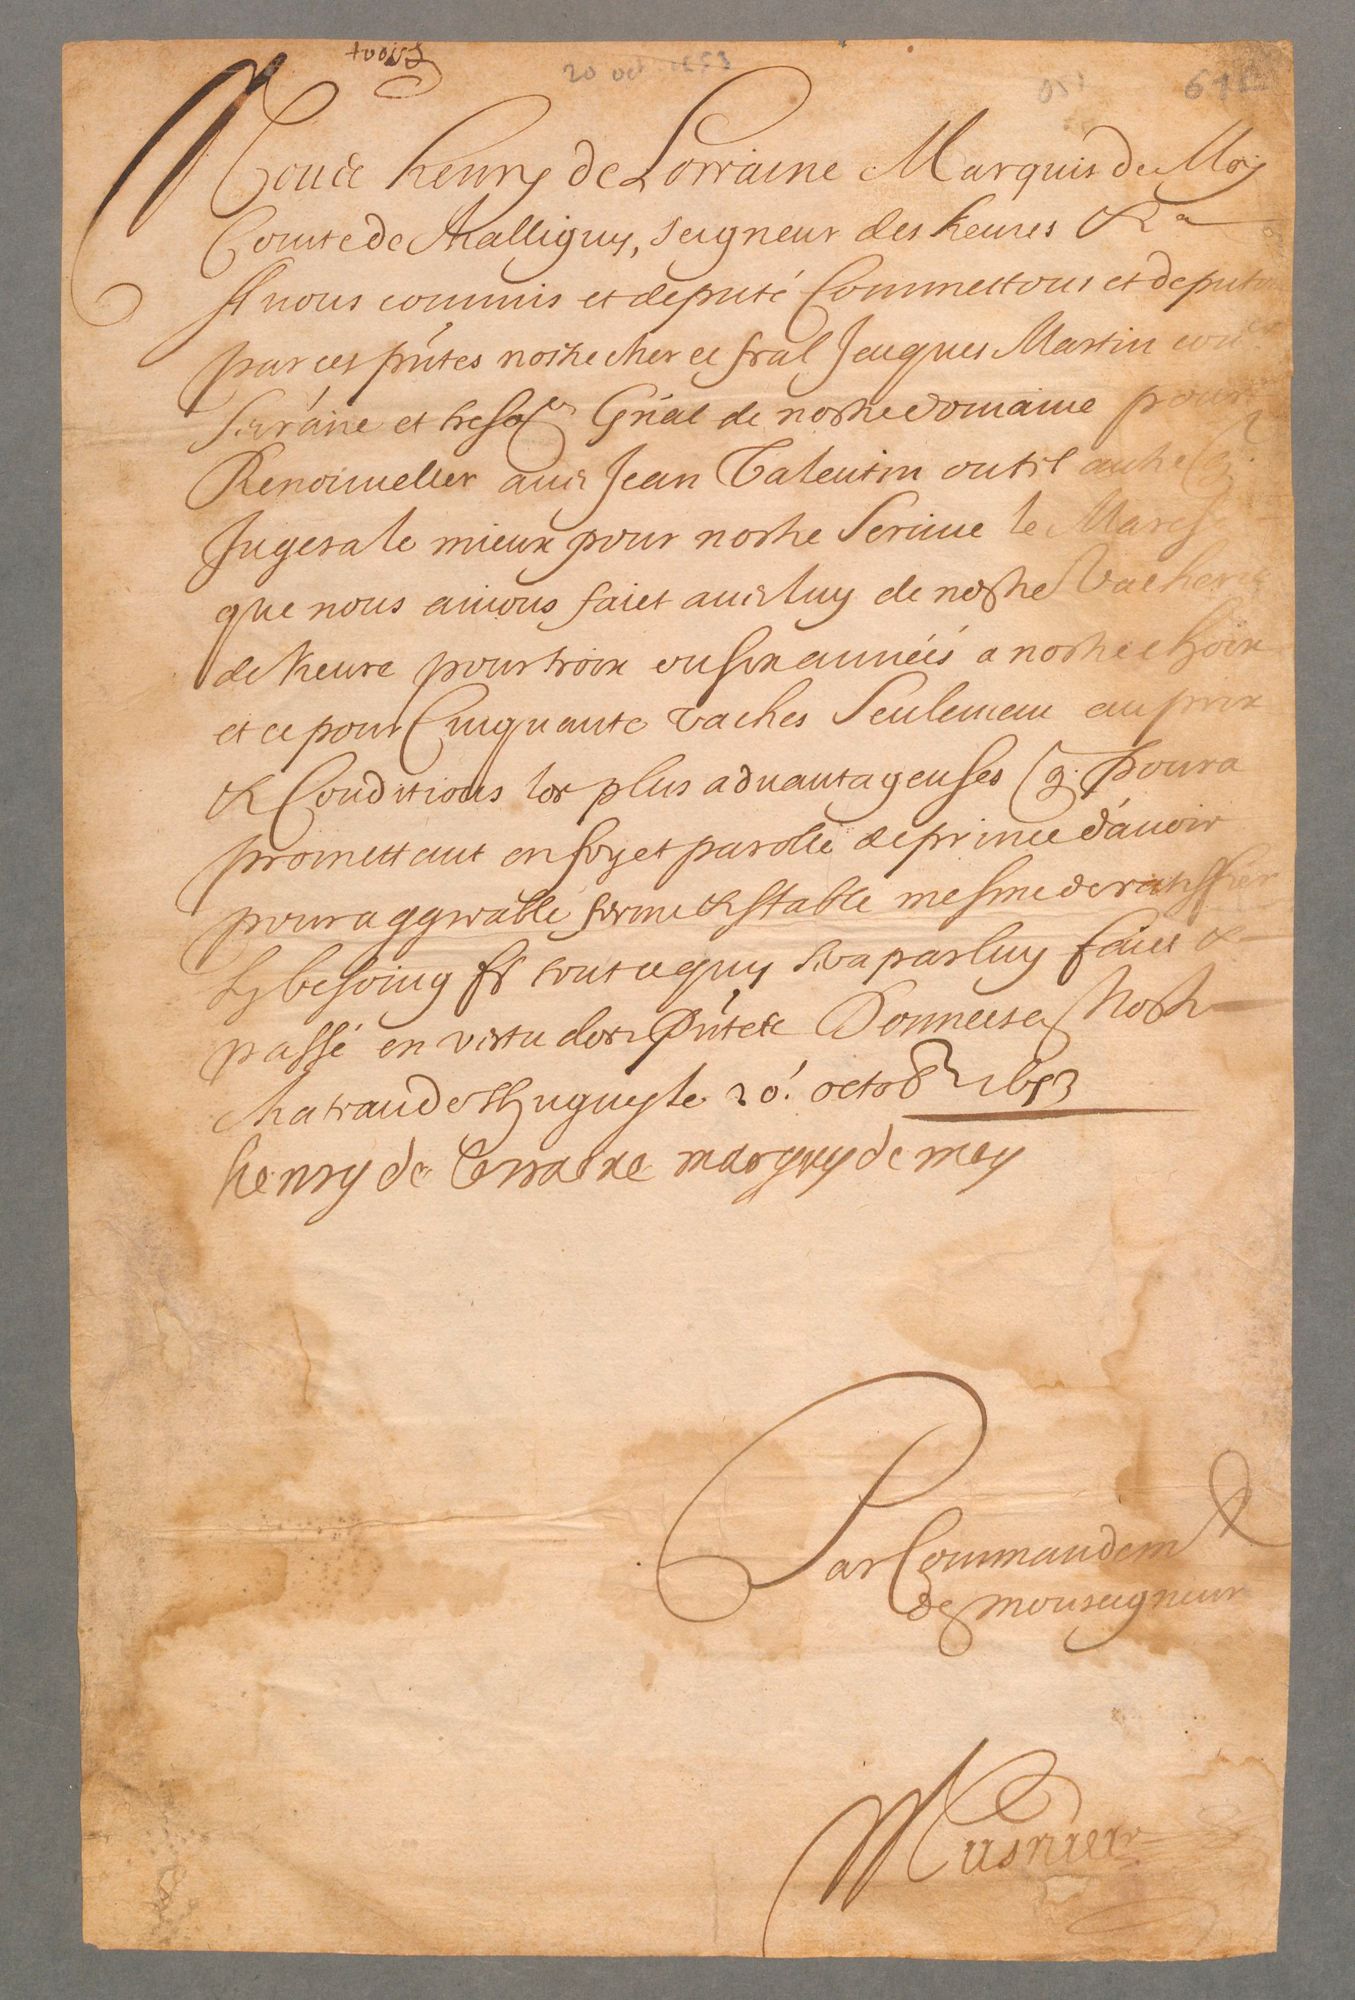 20 oct 1653
Nous henry de Lorraine Marquis de Moy
Comte de Challigny, seigneur des heures &a
A nous commis et deputé Commettons et deputons
par ces pntes nostre cher et féal Jacques Martin con.er
Secraire et tresorer Gnal de nostre domaine pour
Renouveller avec Jean Valentin ou tel autre q.
Jugera le mieux pour nostre Service le Marché
que nous avions faict avec luy de nostre Vacherie
de heure pour trois ou six années a nostre choix
et ce pour Cinquante vaches Seulement au prix
& Conditions les plus advantageuses q. poura
promettant en foy et parolle de prince d'avoir
pour aggreable ferme & stable mesme de ratiffier
sy besoing est tout ce quy sera par luy faict &
passé en vertu des Pntes Donnees a Nostre
chateau de le 20.e octobre 1653
henry de Lorraine marquis de moy
Par Commandem
de monseigneur
Musnier